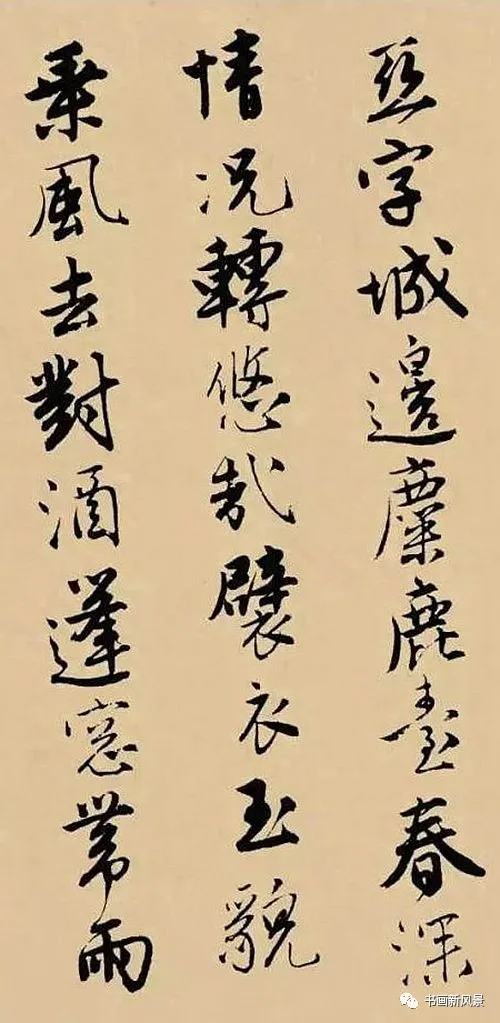 亞字城邊麋鹿臺春深
情況轉悠哉襞衣玉貌
乘風去對酒蓬窗帶雨
书画新风景